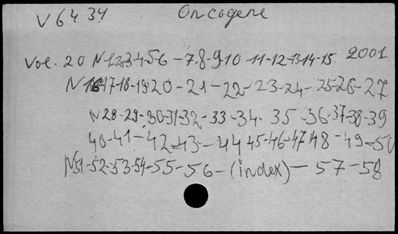 V 6434 Oncogene
Vol. 20 N 1-2-3-4-5-6-7-8-9-10-11-12-13-14-15 2001
N 16-17-18-19-20-21-22-23-24-25-26-27
N 28-29-30-31-32-33-34-35-36-37-38-39
40-41-42-43-44-45-46-47-48-49-50
N 51-52-53-54-55-56-(index)-57-58